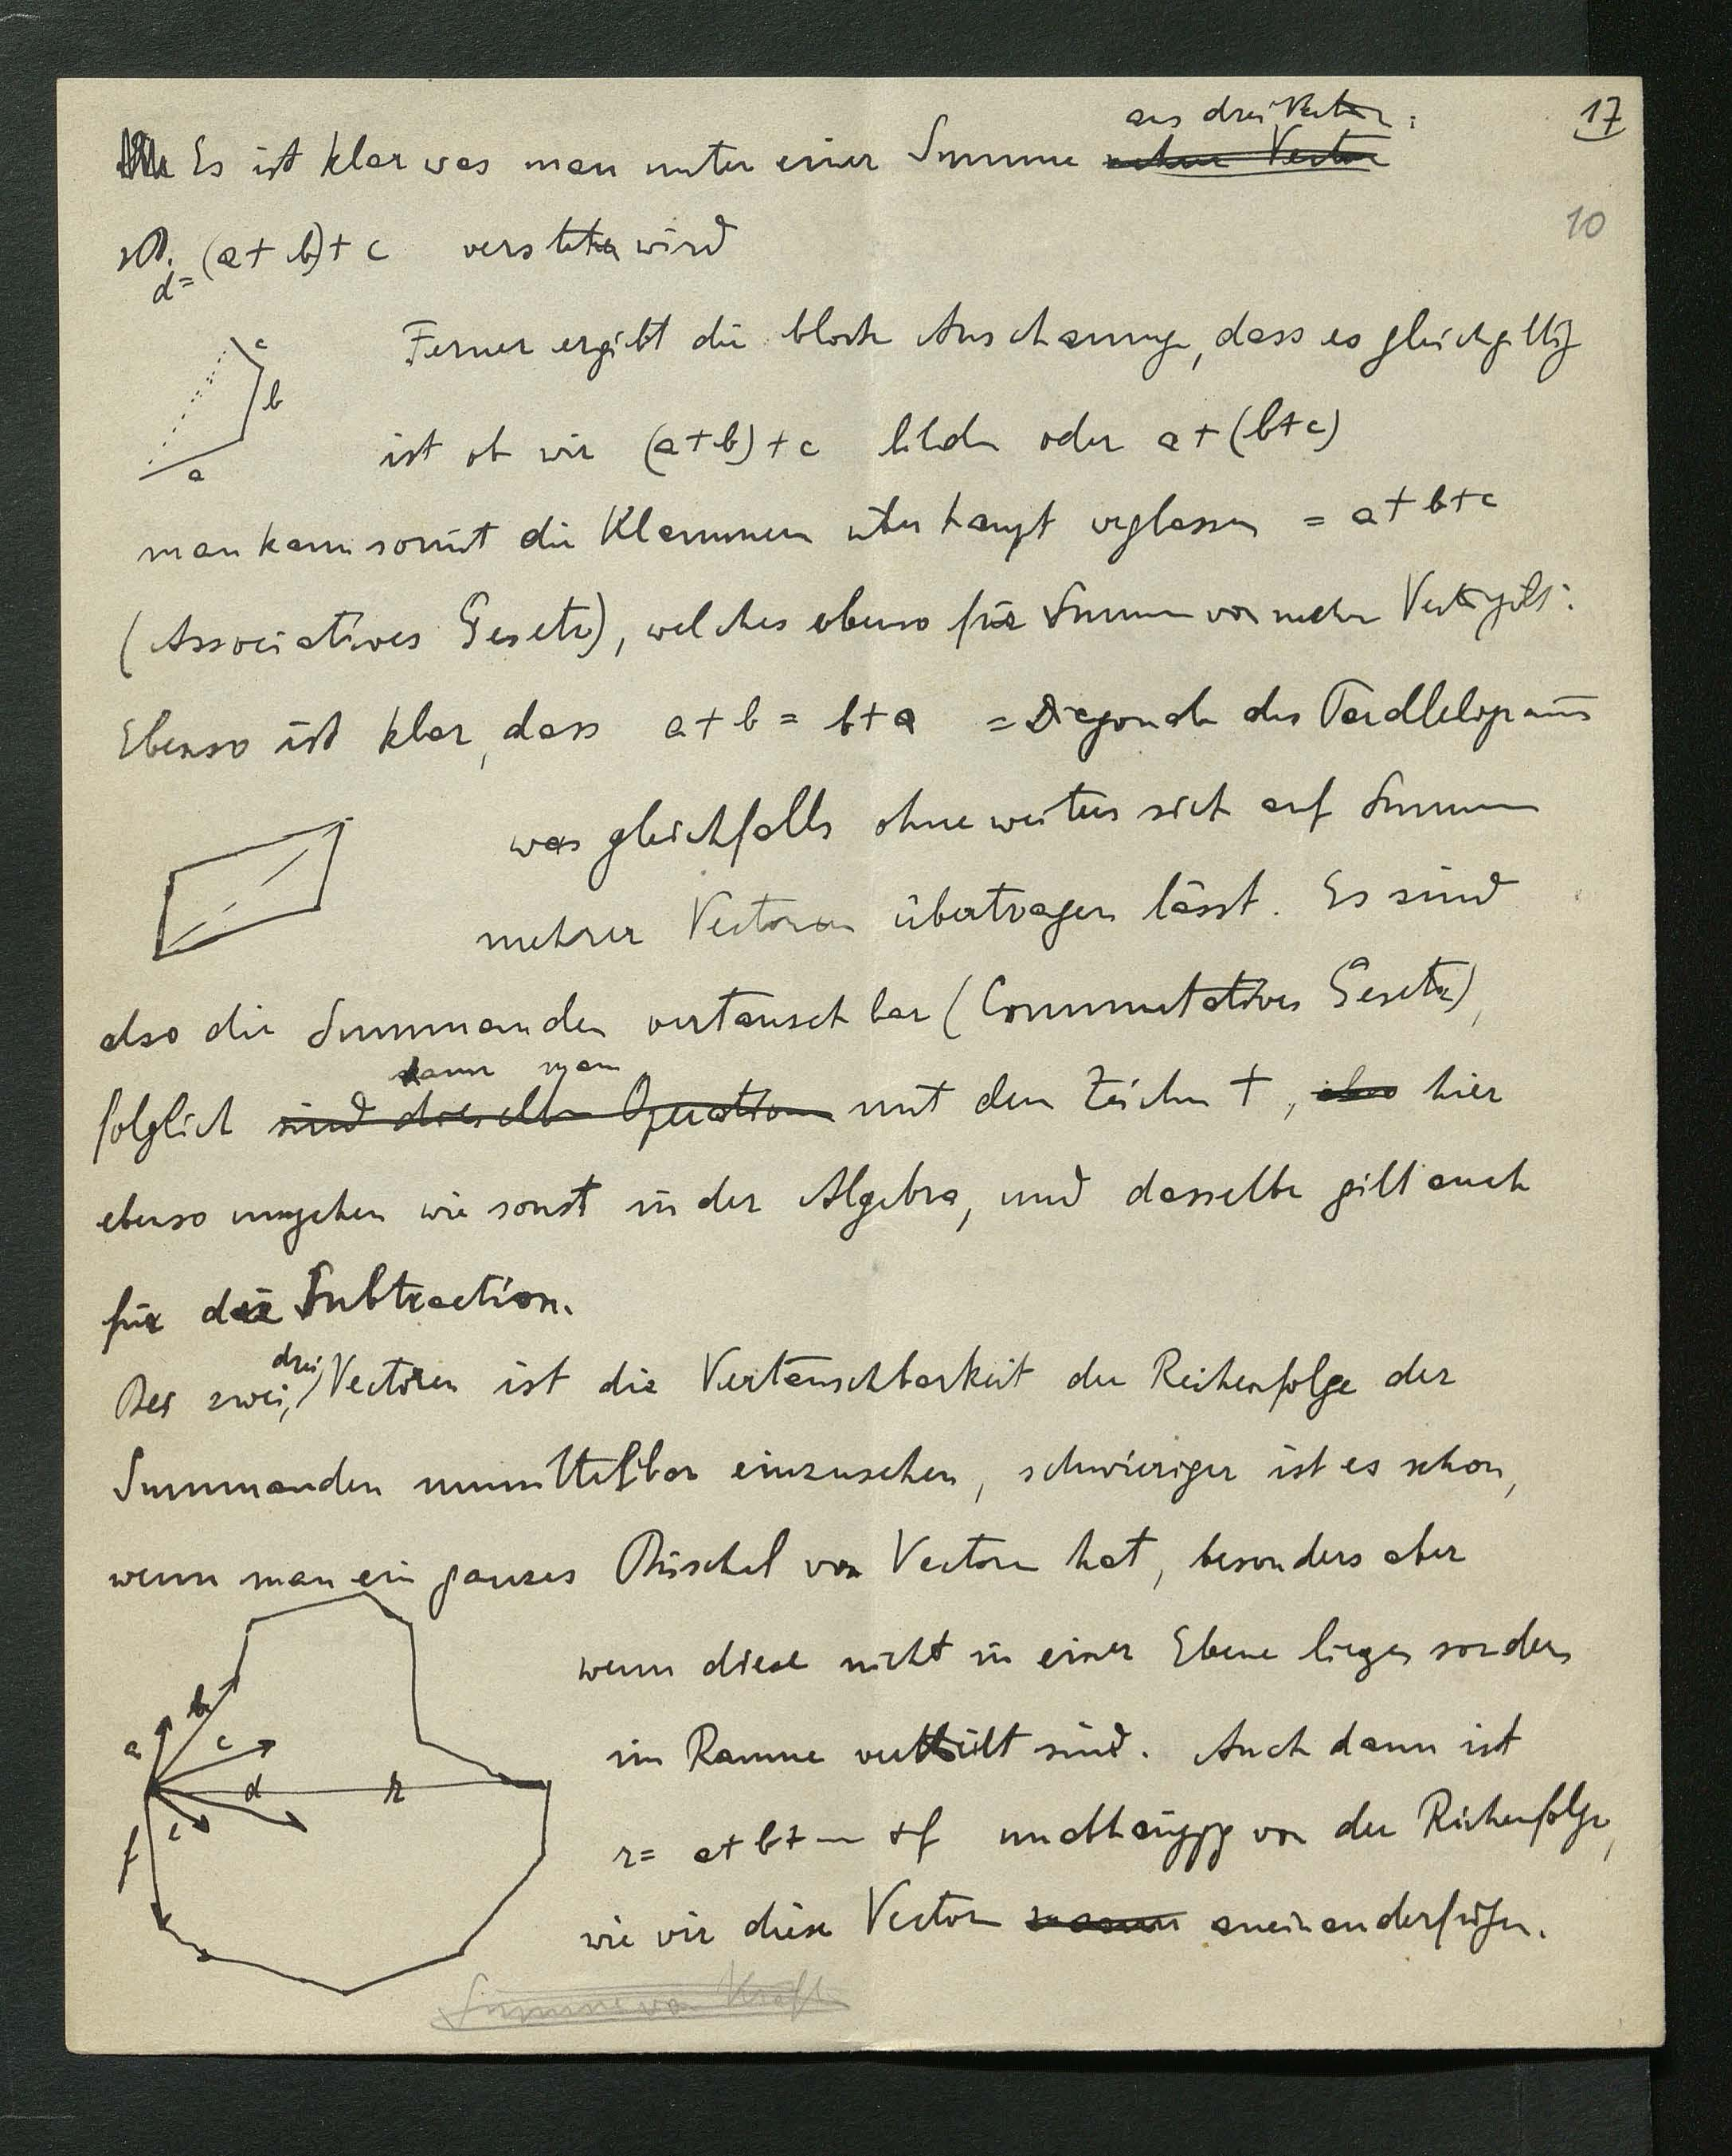 17
aus drei Vektoren:
Es ist klar was man unter einer Summe mehrer Vectoren
10
zB. (a+b)+c verstehen wird
d=
Ferner ergibt die blosse Anschauung, dass es gleichgiltig
c
b
a
ist ob wir (a+b)+c bilden oder a+(b+c)
man kann somit die Klammern überhaupt weglassen = a+b+c
(Associatives Gesetz), welches ebenso für Summen von mehr Vekt. gilt.
Ebenso ist klar, dass a+b = b+a = Diagonale des Parallelogramms
was gleichfalls ohneweiters sich auf Summen
mehrer Vectoren übertragen lässt. Es sind
also die Summanden vertauschbar (Commutatives Gesetz),
kann man
folglich sind dieselben Operationen mit dem Zeichen +, also hier
ebenso umgehen wie sonst in der Algebra, und dasselbe gilt auch
für die Subtraction.
drei
Bei zwei, Vectoren ist die Vertauschbarkeit der Reihenfolge der
Summanden unmittelbar einzusehen, schwieriger ist es schon,
wenn man ein ganzes Büschel von Vectoren hat, besonders aber
wenn diese nicht in einer Ebene liegen sondern
b
a
c
im Raume vertheilt sind. Auch dann ist
d
r
e
f
r= a+b+ — +f unabhängig von der Reihenfolge,
wie wir diese Vectoren aneinanderfügen.
Summe von Kräften